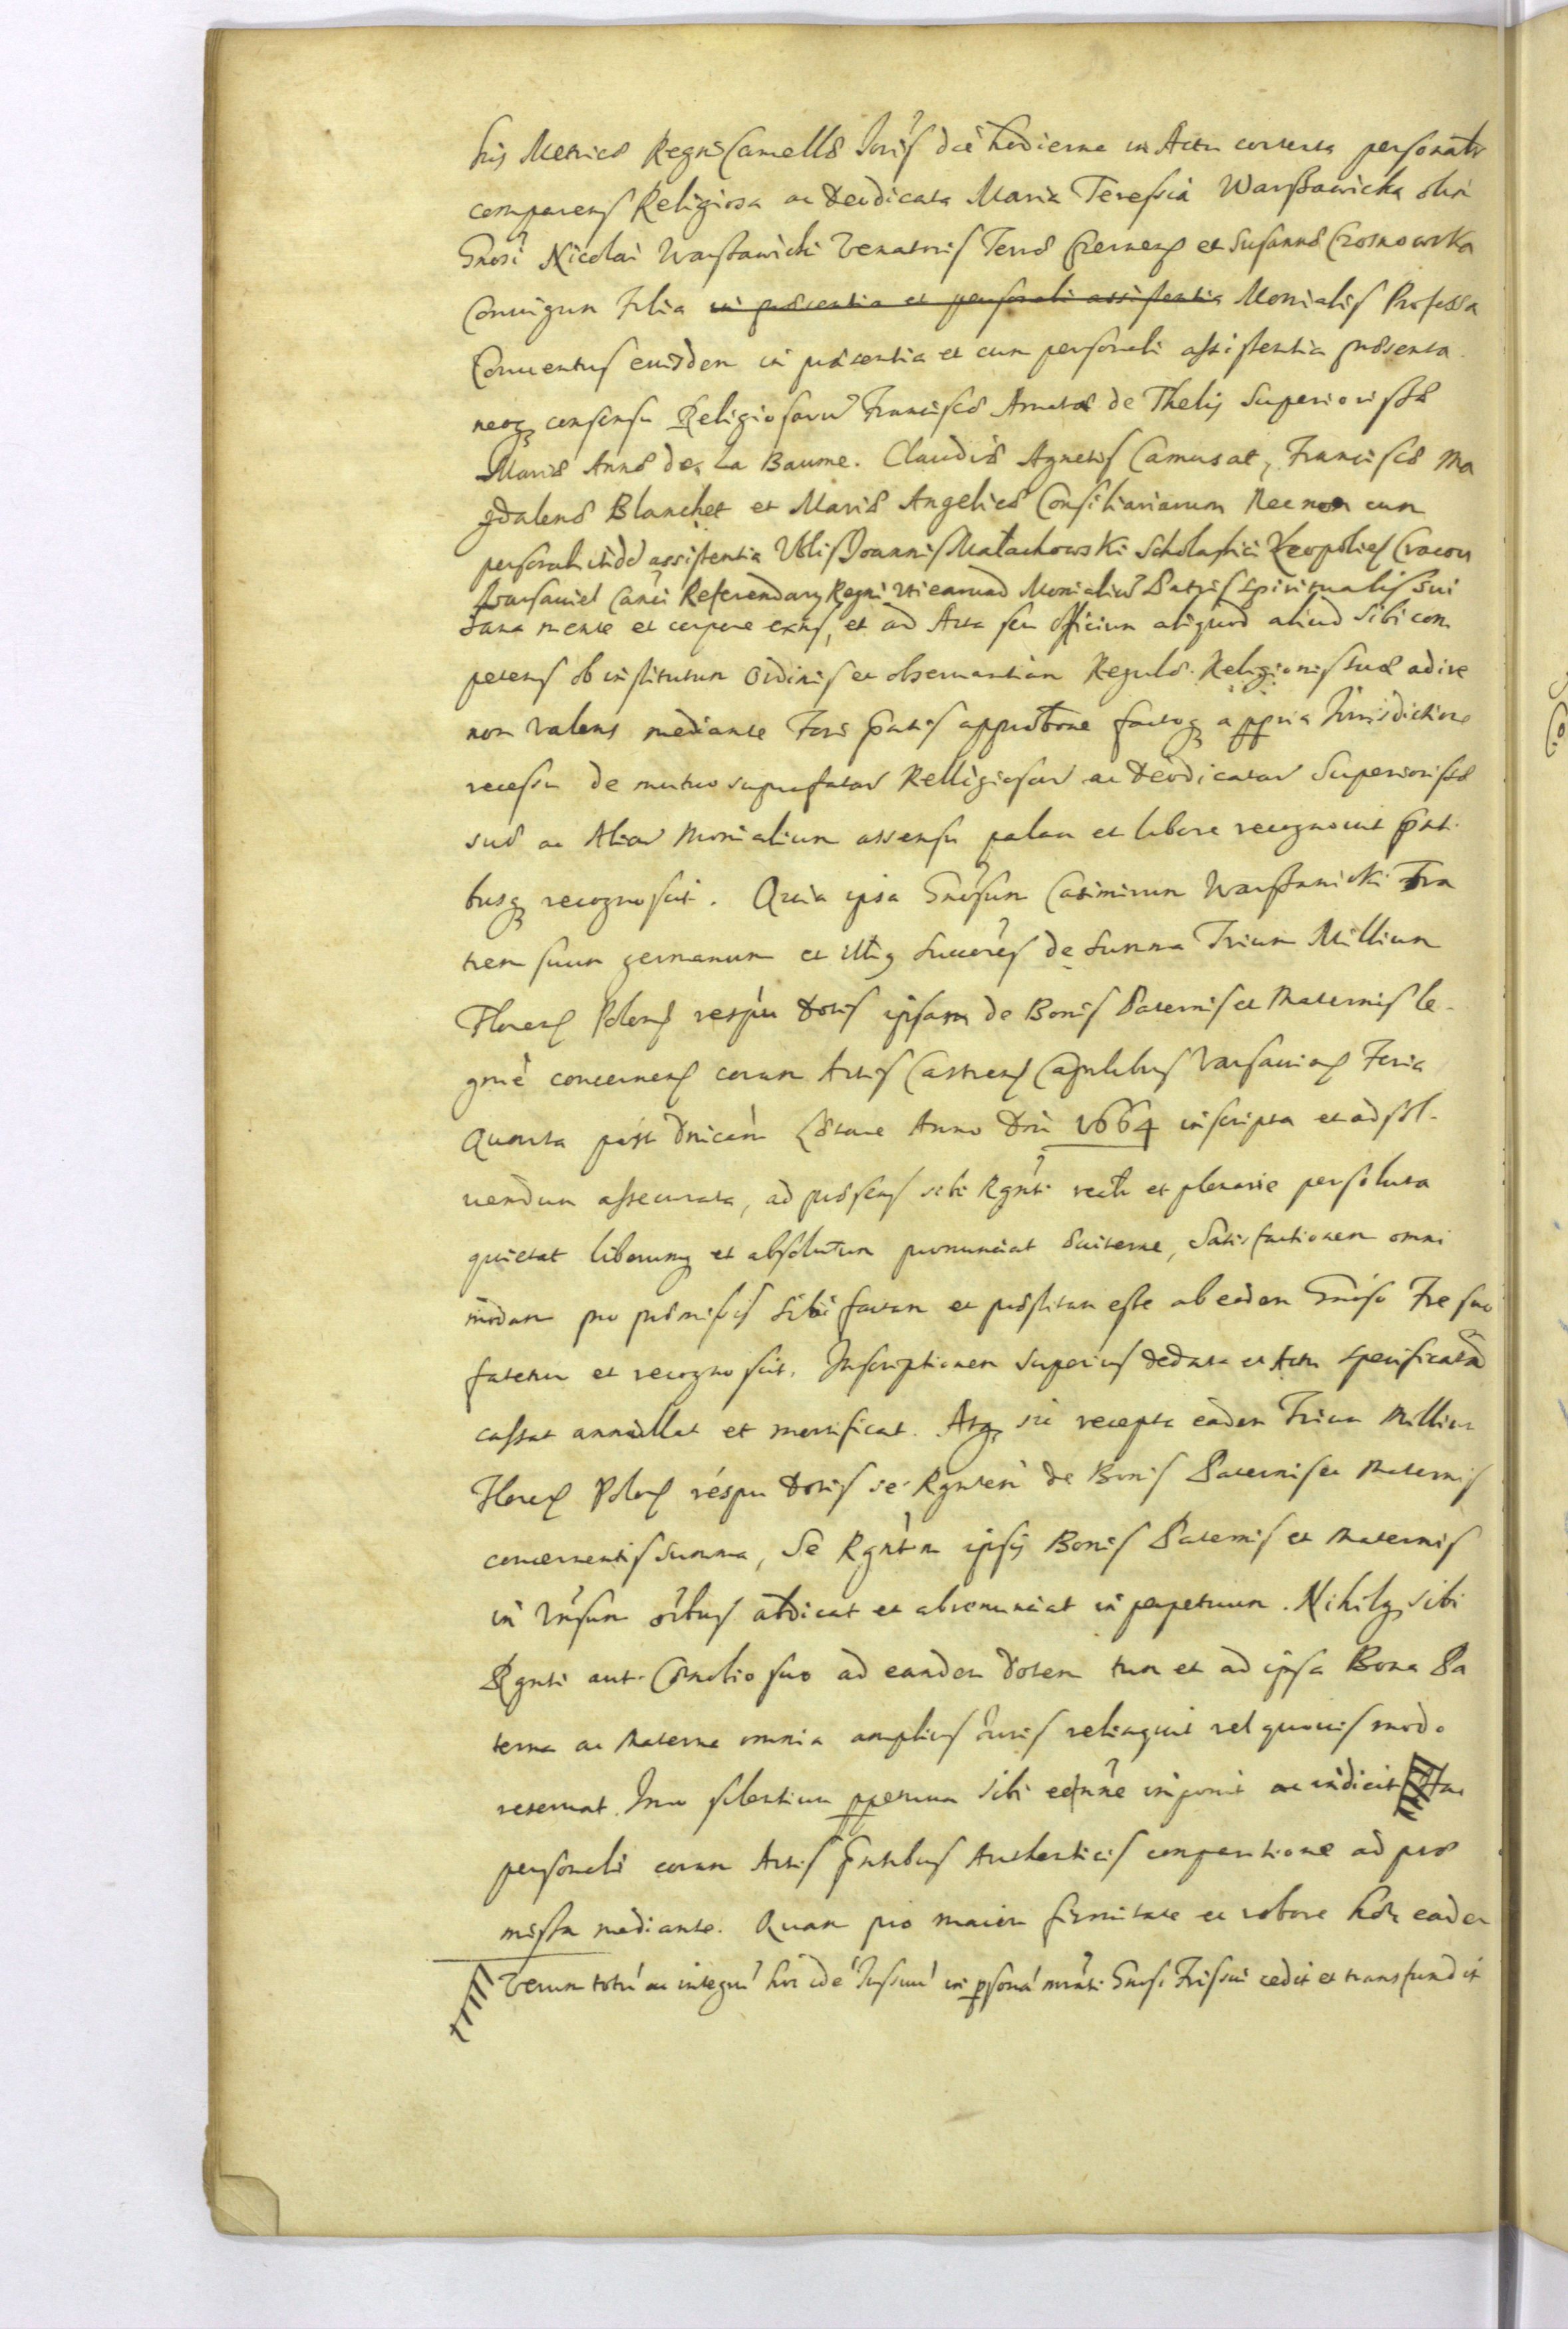 his Metrices Regni Cancellae Ioris die hodierna in Actu contenta personalr
comparens Religiosa ac Deodicata Maria Teressia Warszawicka olim
Gnosi Nicolai Warszawicki Venatoris Terrae Czernens et Susannae Crosnowska
Coniugum Filia in praesentia et personali assistentia Monialis Professa
Conuentus eiusdem in praesentia et cum personali assistentia praesenta
neoq consensu Religiosarum Franciscae Amatae de Thelis Superiorissae
Mariae Annae de La Baume. Claudiae Agnetis Camusat, Franciscae Ma
gdalenae Blanchet et Mariae Angelicae Consiliariarum Nec non cum
personali itidem assistentia Vblis Ioannis Małachowski Scholastici Leopolien Cracou
Warsauien Canci Referendary Regni vti earund Monialiu Patris spiritualis sui
sana mente et corpore exns, et ad Acta seu Officium aliquod aliud sibi com
petens ob institutum Ordinis et obseruantiam Regulae Religionis suae adire
non valens mediante Fori pntis approbtone factoq a ppria Iurisdictione
recessu de mutuo suprafatar Religiosar ac Deodicatar Superiorissae
suae ac Aliar Monialium assensu palam et libere recognouit pnt
busq recognoscit. Quia ipsa Gnosum Casimirum Warszawicki Fra
trem suum germanum et illiq Succres de Summa Trium Millium
Floren Polon respu Dotis ipsam de Bonis Paternis et Maternis le
gme concernens coram Actis Castren Captlibus Varsauien Feria
Quarta post Dnicam Laetare Anno Dni 1664 inscripta et ad sol
uendum assecurata, ad praesens sibi Rgnti recte et plenarie persoluta
quietat liberumq et absolutum pronunciat Suiterne, Satisfactionem omni
modam pro praemissis sibi factam et praestitam esse ab eodem Gnoso Fre suo
fatetur et recognoscit. Inscriptionem superius dedata et Actu specificatam
cassat annullat et mortificat. Atq sic recepta eadem Trium Milliu
Floren Polon respu Dotis se Rgntem de Bonis Paternis et Maternis
concernentis summa, Se Rgntem ipsis Bonis Paternis et Maternis
in Vnsum oibus abdicat et abrenunciat in perpetuum. Nihilq sibi
Rgnti aut Conuentio suo ad eandem dotem tum et ad ipsa Bona Pa
terna ac Materna omnia amplius Iuris relinquit vel quouis modo
reseruat. Imo silentium ppetuum sibi imponit ac indicit Hac
personali coram Actis pntibus Authenticis comparitione ad prae
missa mediante. Quam pro maiori firmitate et robore eadem
Verum totu ac integru hoc ide Ius suu in psona mrati Gnosi Fris sui cedit et transfundit